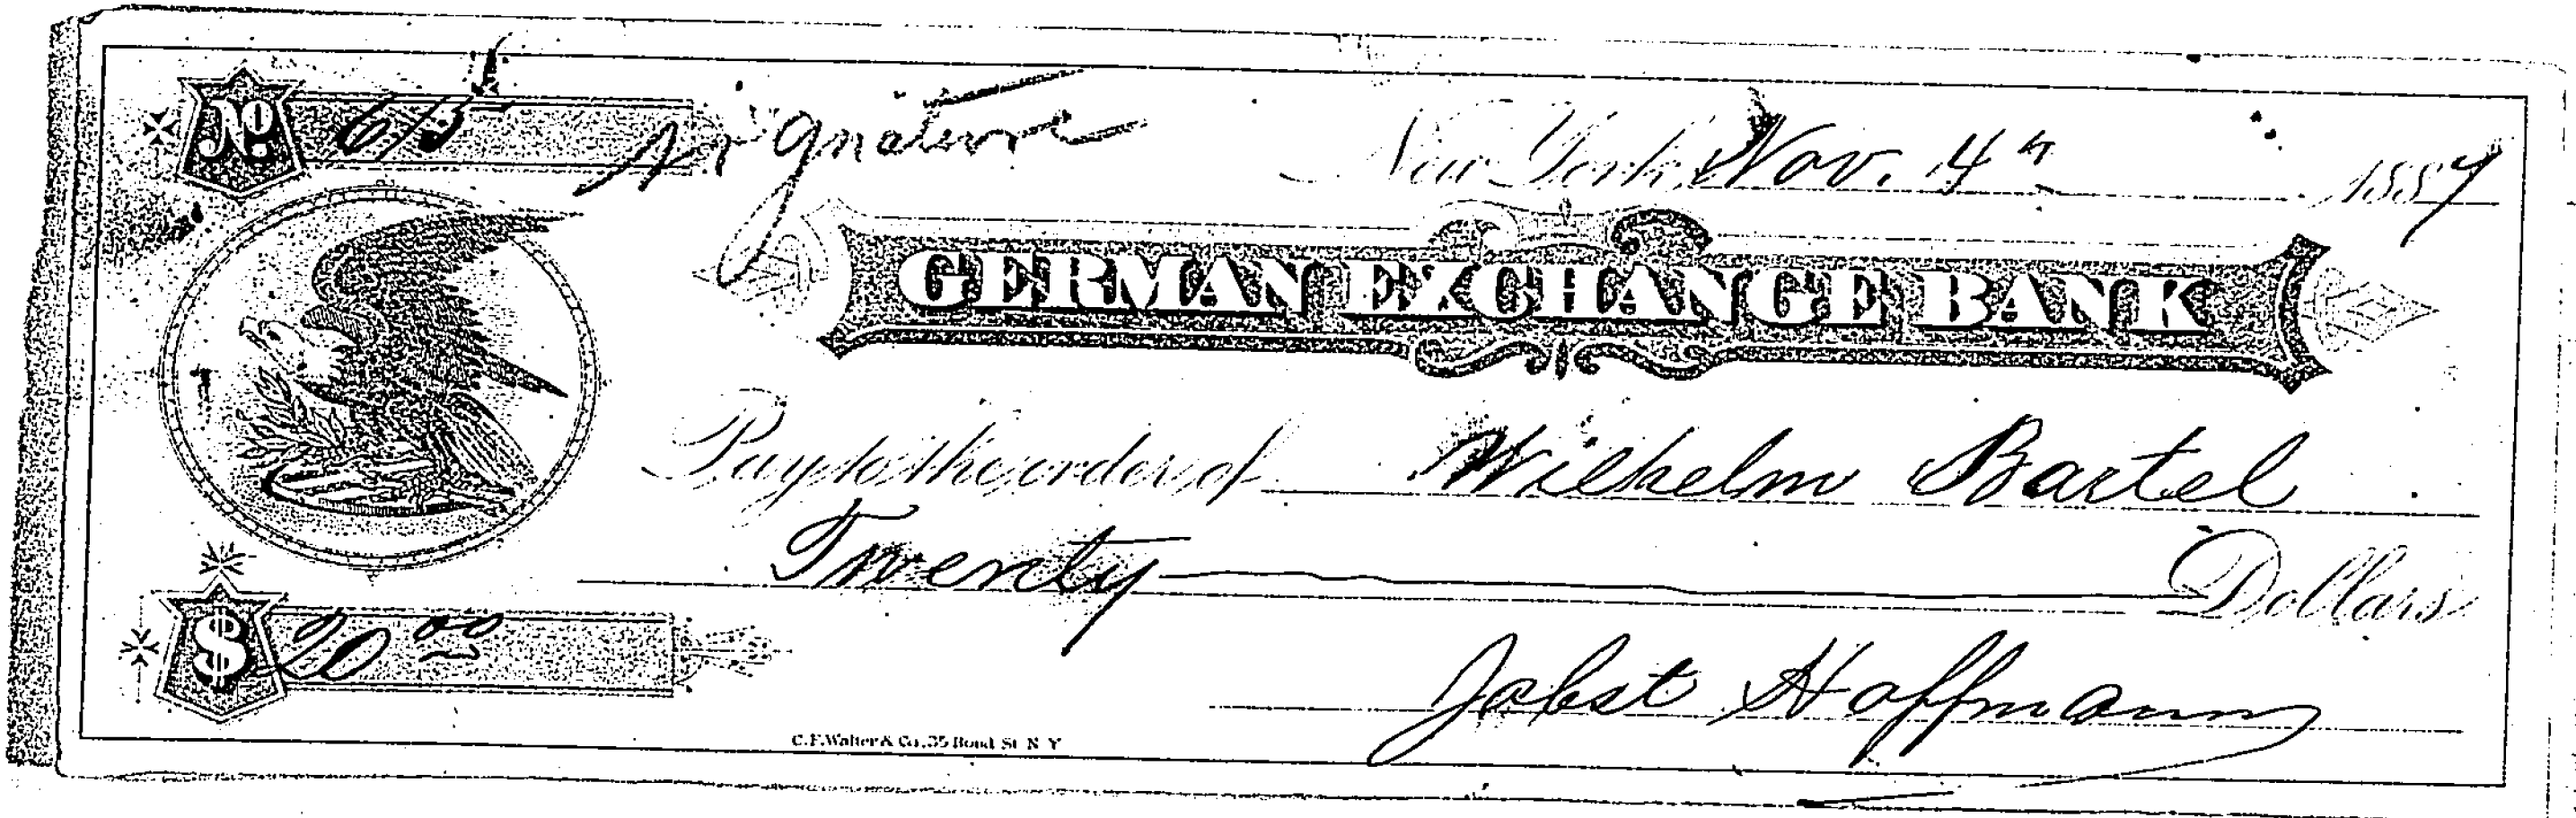 No 615 signature New York, Nov. 4th 1887
GERMAN EXCHANGE BANK
Pay to the order of Wilhelm Bartel
Twenty Dollars
$ 20 00
Jobst Hoffmann
C.F. Walter & Co., 35 Bond St N Y